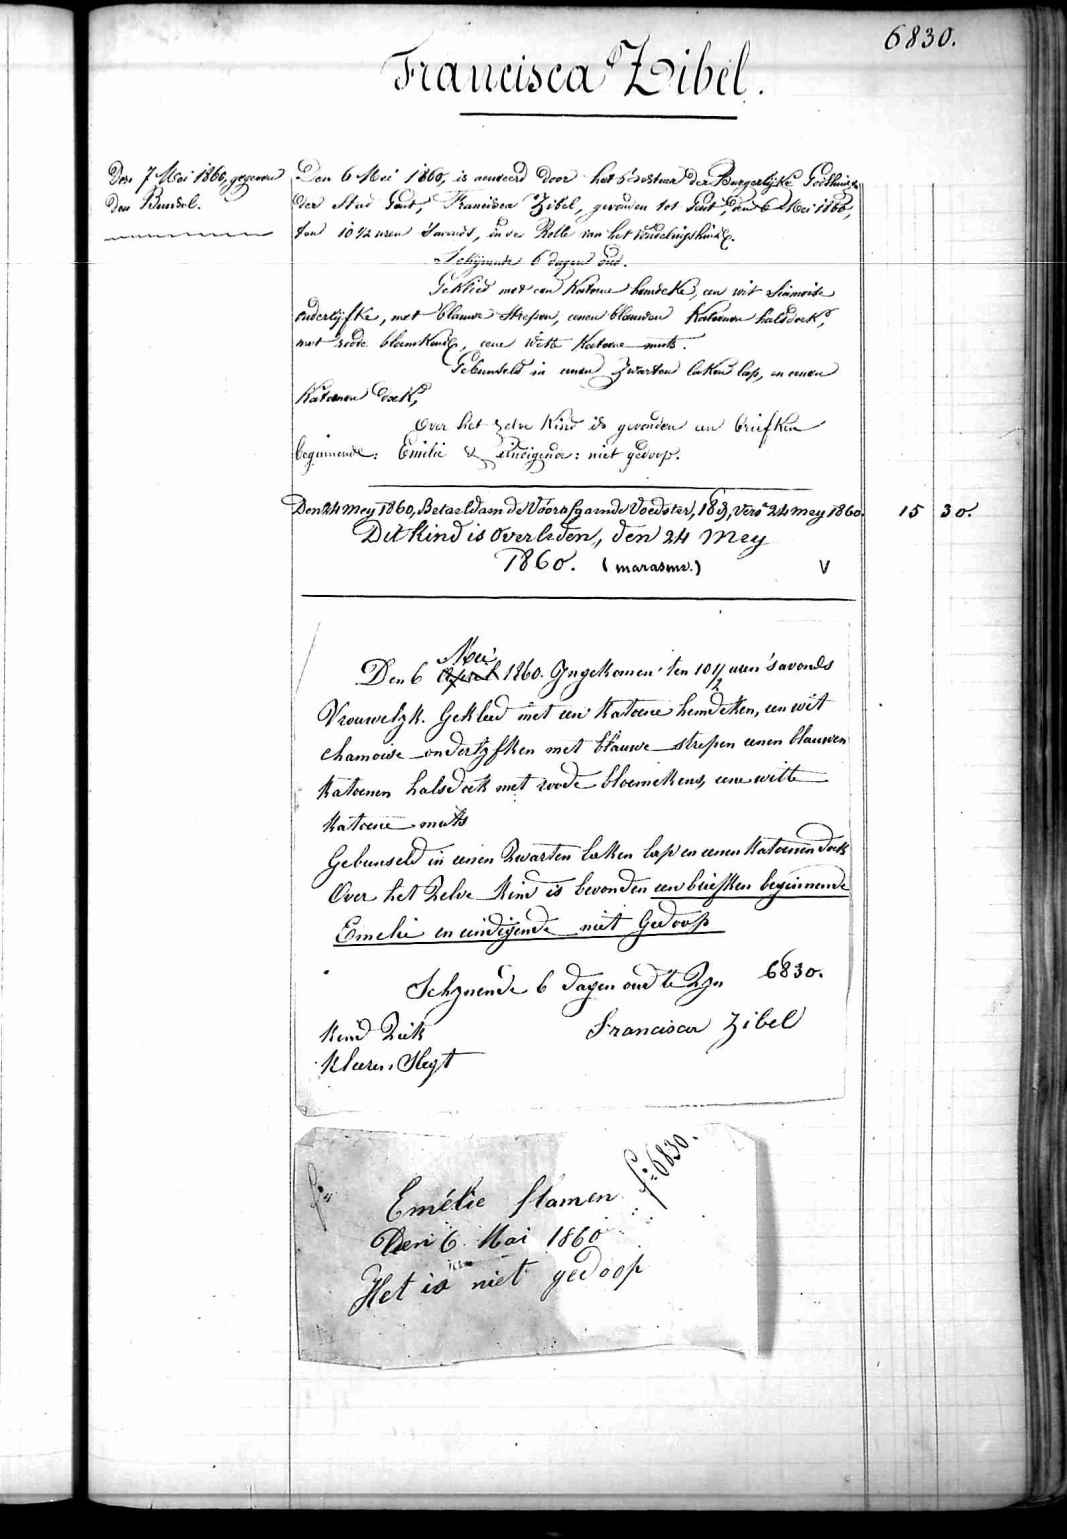 6830.
Francisca Zibel.
Den 7 Mei 1860, gegeven
den Bunsel.
Den 6 Mei 1860, is aenveerd door het bestuer der Burgerlijke Godshuizen
der Stad Gent, Francisca Zibel, gevonden tot Gent, den 6 Mei 1860,
ten 10 1/2 uren 's avonds, in de Rolle van het vondelingshuis.
Schijnende 6 dagen oud.
Gekleed met een Katoene hemdeke, een wit Siamoise
onderlijfke, met blauwe strepen, eenen blauwen Katoenen halsdoek,
met roode bloemkens, eene witte Katoene muts.
Gebunseld in eenen zwarten laken lap, en eenen
Katoenen doek,
Over het zelve Kind is gevonden een briefken
beginnende: Emilie & eindigende: niet gedoop.
Den 24 mey 1860, Betaeld aen de Voorafgaende Voedster, 18 d, vers 24 mey 1860. 15 30.
Dit kind is overleden, den 24 Mey
1860. (marasme.) V
Mei
Den 6 April 1860. Yngekomen ten 10 1/2 uren 's avonds
Vrouwelyk. Gekleed met een Katoene hemdeken, een wit
chamoise onderlyfken met blauwe strepen eenen blauwen
Katoenen halsdoek met roode bloemekens, eene witte
Katoene muts
Gebunseld in eenen Zwarten laken lap en eenen Katoenen doek
Over het Zelve Kind is bevonden een briefken beginnende
Emelie en eindigende niet Gedoop
Schynende 6 dagen oud te Zyn 6830.
Kind Ziek Francisca Zibel
Kleeren Slegt
fo 6830.
Emélie flamen
Den 6 Mai 1860
Het is niet gedoop